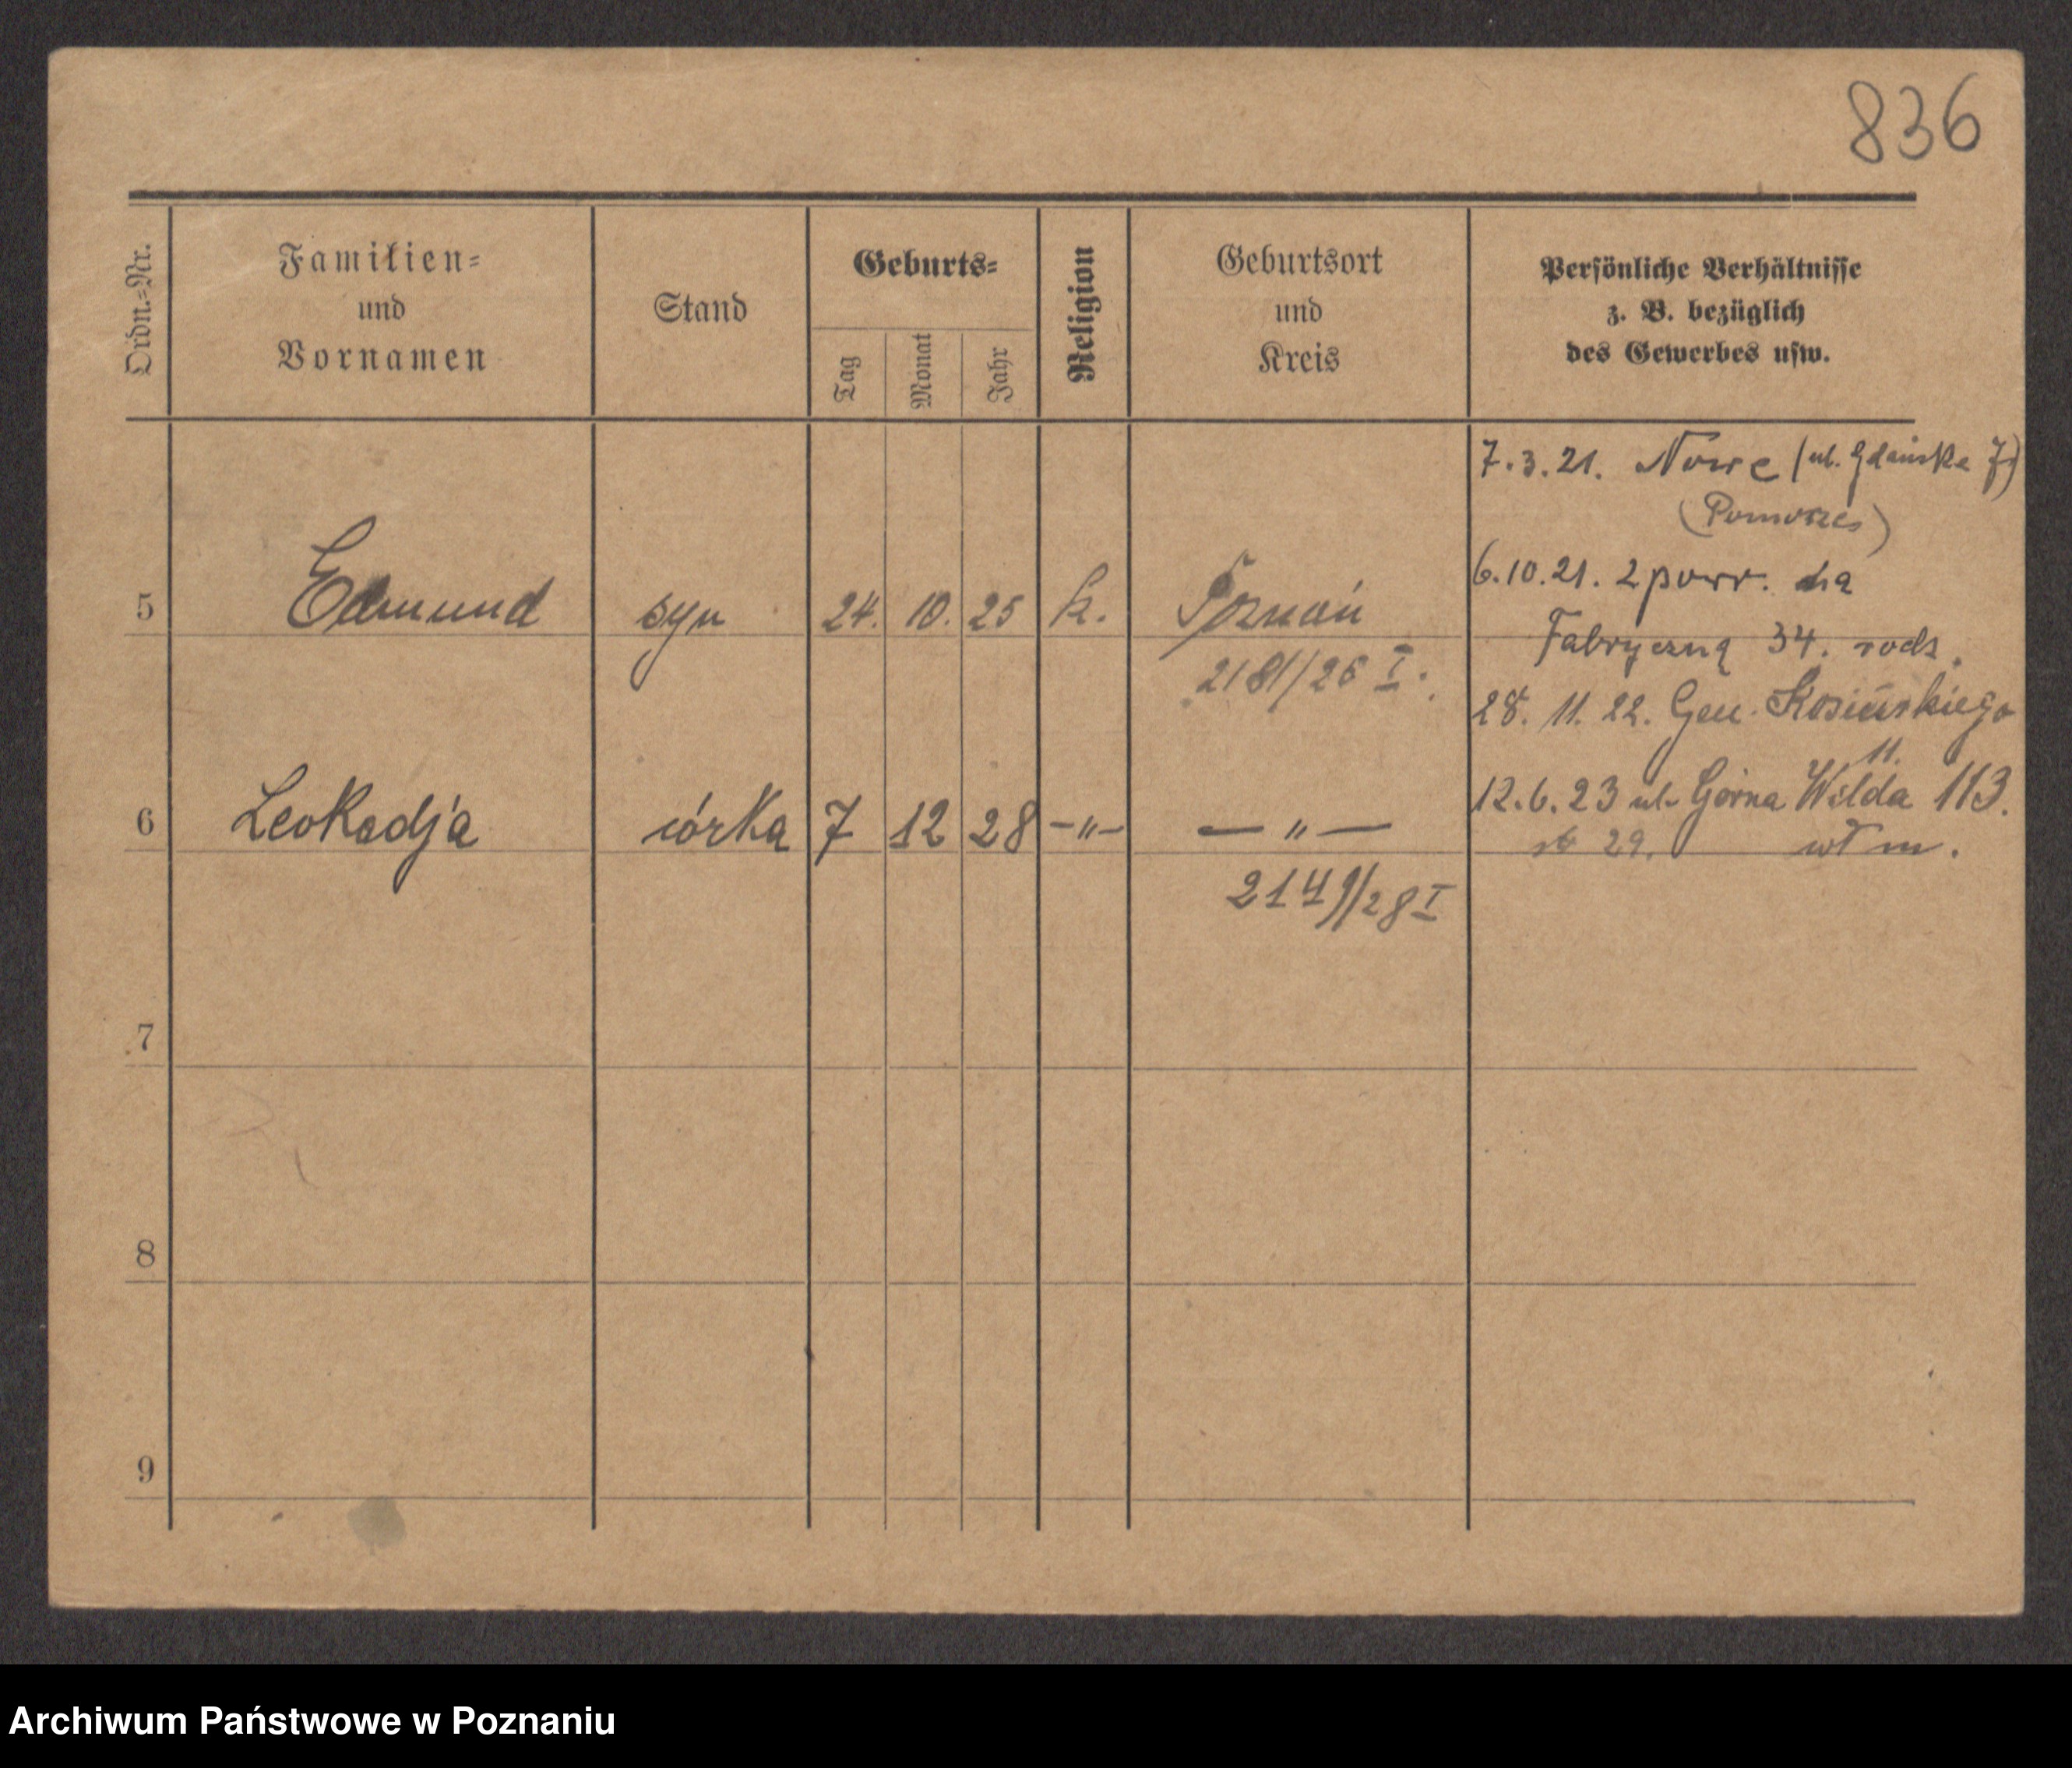 836
Ordn.-Nr.
Familien-
und
Vornamen
Stand
Geburts-
Tag
Monat
Jahr
Religion
Geburtsort
und
Kreis
Persönliche Verhältnisse
z. B. bezüglich
des Gewerbes usw.
7.3.21. Nowe (ul. Gdańska 7)
(Pomorze)
6.10.21. z powr. na
5 Edmund syn 24. 10. 25 k. Poznań
Fabryczną 34. rodz.
2181/26 I.
28. 11. 22. Gen. Kosińskiego
11.
12.6.23 ul. Górna Wilda 113.
6 Leokadja córka 7 12 28 -"- — " —
29. wł m.
2149/28 I
7
8
9
Archiwum Państwowe w Poznaniu